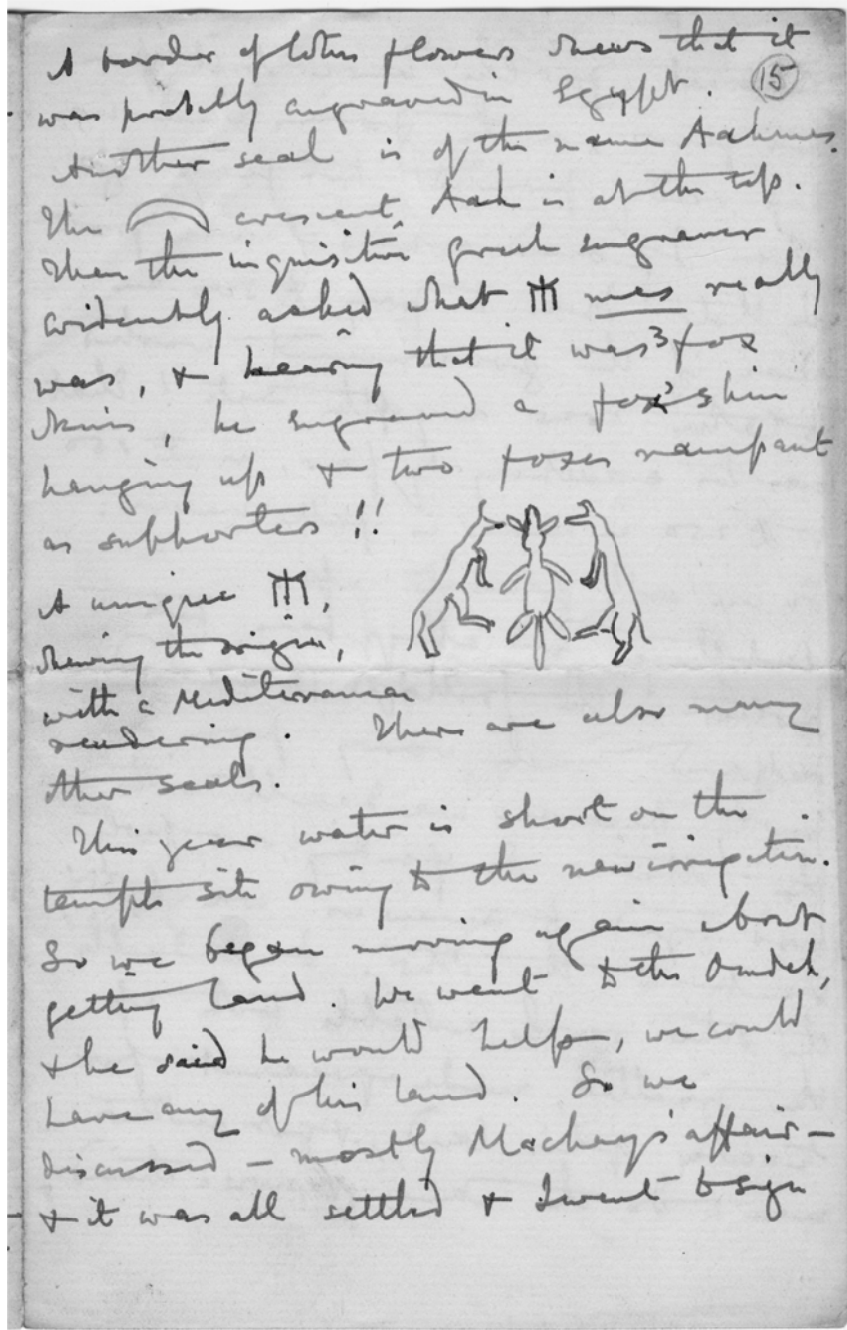 A border of lotus flowers shews that it
15
was probably engraved in Egypt.
Another seal is of the name Aahmes.
The crescent, Aah is at the top.
Then the inquisitive Greek engraver
evidently asked what 𓄟 mes really
was, & hearing that it was 3 fox
skins, he engraved a fox's skin
hanging up & two foxes rampant
as supporters !!
A unique 𓄟,
shewing the origin,
with a Mediterranean
rendering. There are also many
other seals.
This year water is short on the
temple site owing to the new irrigation.
So we began moving again about
getting land. We went to the Omdeh,
& he said he would help, we could
have any of his land. So we
discussed – mostly Mackay's affair –
& it was all settled & I went to sign